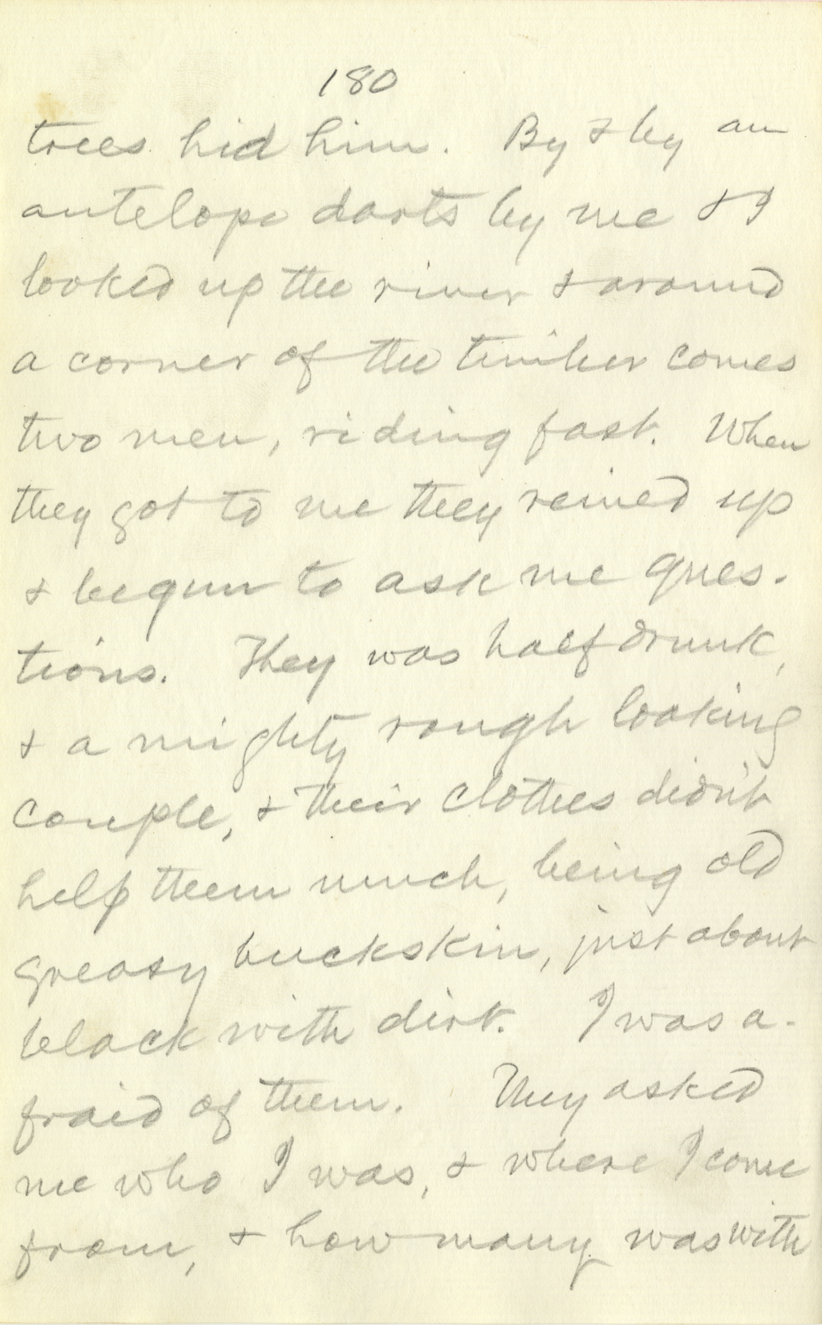 180
trees hid him. By & by an
antelope darts by me & I
looked up the river & around
a corner of the timber comes
two men, riding fast. When
they got to me they reined up
& begun to ask me ques-
tions. They was half drunk,
& a mighty rough looking
couple, & their clothes didn't
help them much, being old
greasy buckskin, just about
black with dirt. I was a-
fraid of them. They asked
me who I was, & where I come
from, & how many was with